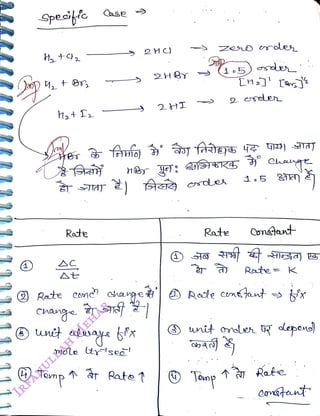 Specific Case →
H₂ + Cl₂ → 2HCl → zero order
Imp H₂ + Br₂ → 2HBr → 1.5 order
[H₂]¹ [Br₂]^½
H₂ + I₂ → 2HI → 2 order
HBr के निर्माण में वेग निरोधक पद पाया जाता
है जिसमें HBr पुनः अभिकारक में change
हो जाता है। जिससे order 1.5 आता है।
Rate
Rate Constant
① ΔC/Δt
① जब सभी की सान्द्रता एक
हो तो Rate = K
② Rate concⁿ change से
change हो जाती है।
② Rate constant → fix
③ unit always fix
mole ltr⁻¹ sec⁻¹
③ unit order पर depend
करती है।
④ Temp ↑ तो Rate ↑
④ Temp ↑ तो Rate
constant